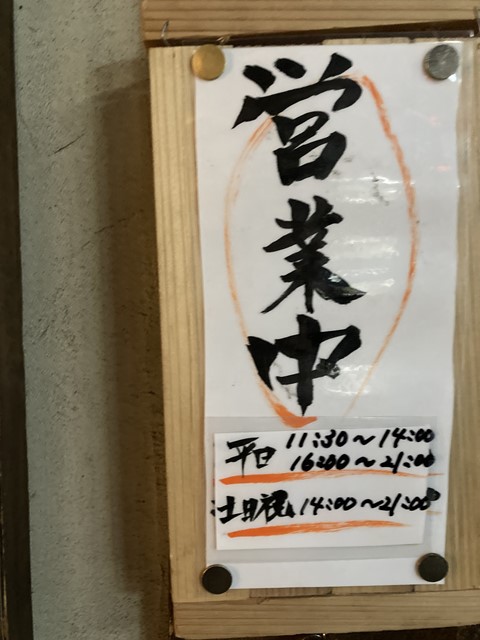 営業中
平日 11:30～14:00
16:00～21:00
土日祝 14:00～21:00